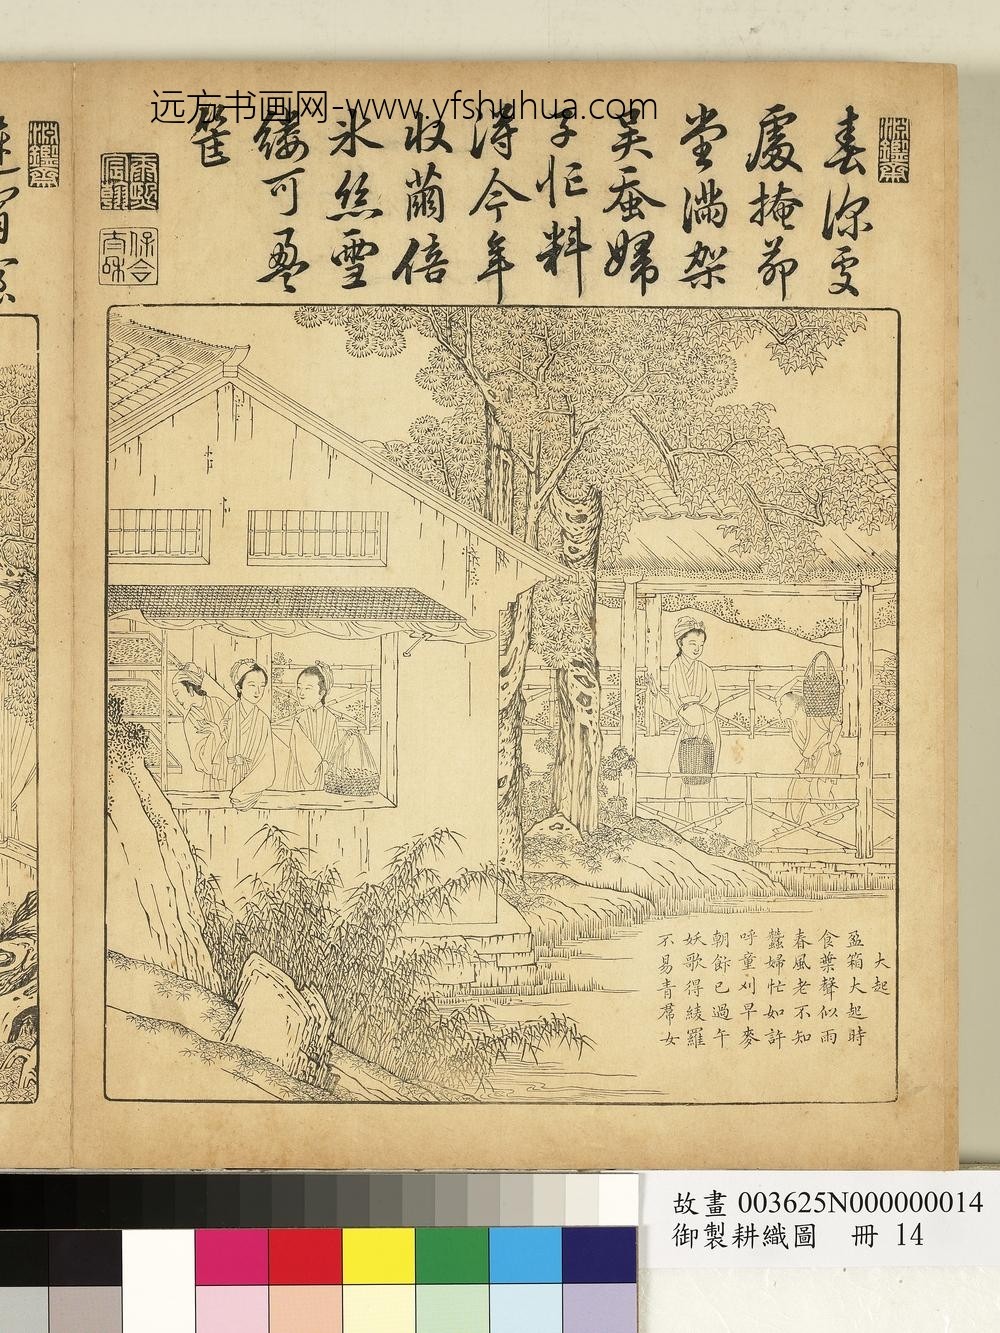 远方书画网-www.yfshuhua.com
淵鑒齋
春深处
處掩茆
堂滿架
吴蚕婦
子忙料
得今年
收繭倍
氷絲雪
縷可盈
筐
康熙宸翰
保合太和
淵鑒齋
大起
盈箱大起時
食葉聲似雨
春風老不知
蠶婦忙如許
呼童刈早麥
朝飰已過午
妖歌得綾羅
不易青帬女
故畫 003625N000000014
御製耕織圖 冊 14